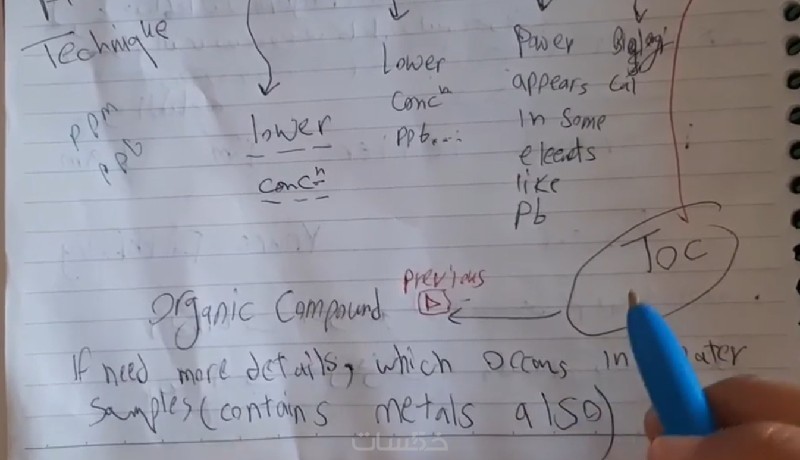 Technique
ppm
ppb
lower
concⁿ
Lower
concⁿ
ppb...
Power
appears
In Some
like
Pb
cal
Toc
previous
organic Compound
If need more details, which occurs in water
samples (contains metals also)
خمسات